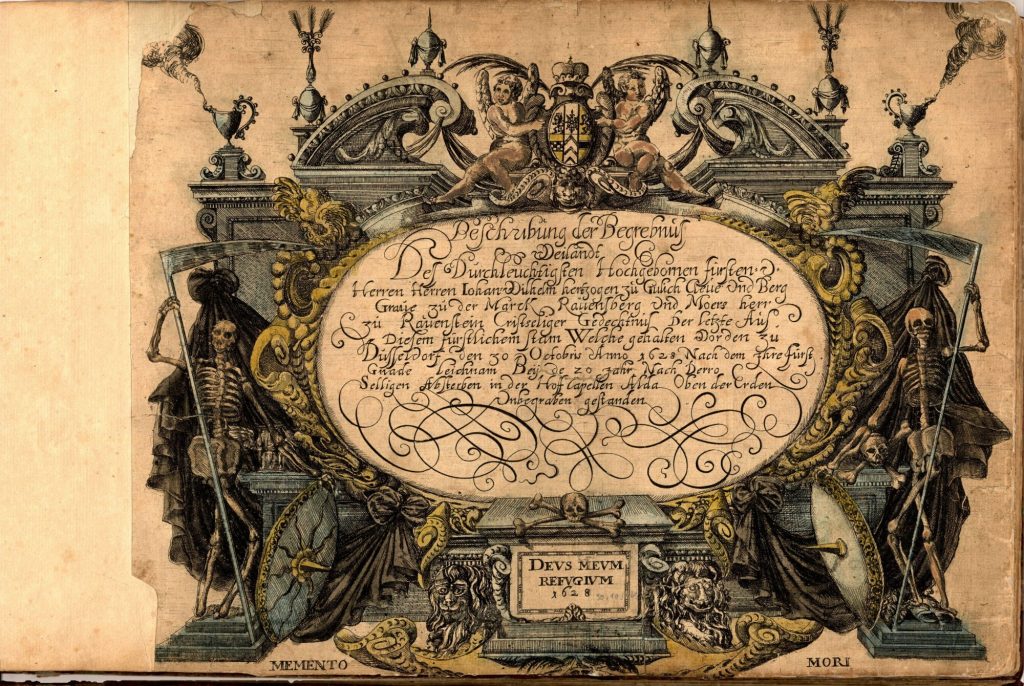 Beschribung der Begrebnus
Weilandt
Des Durchleuchtigsten Hochgebornen fursten
Herren Herren Iohan Wilhelm hertzogen zu Gulich Cleve Und Berg
Grave zu der Marck Ravensberg Und Moers herr
zu Ravenstein Cristseliger Gedechtnus Der letzte Aus
Diesem furstlichem stam Welche gehalten Worden zu
Düsseldorf den 30 Octobris Anno 1628 Nach dem Ihre furst
Gnade Leichnam Beij de 20 Jahr Nach Derro
Selligen Absterben in der Hof Capellen Alda Oben der Erden
Unbegraben gestanden
DEVS MEVM
REFVGIVM
1628
MEMENTO MORI